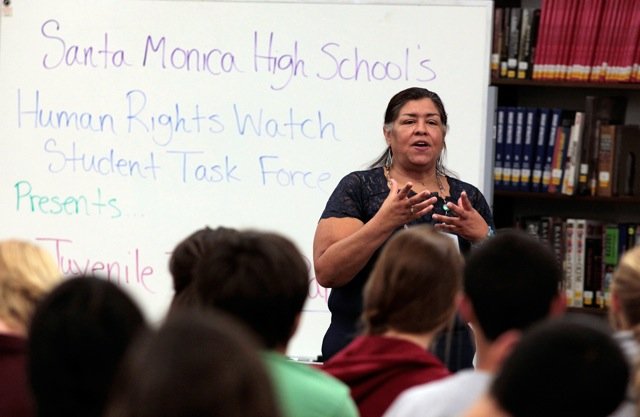 Santa Monica High School's
Human Rights Watch
Student Task Force
Presents...
Juvenile